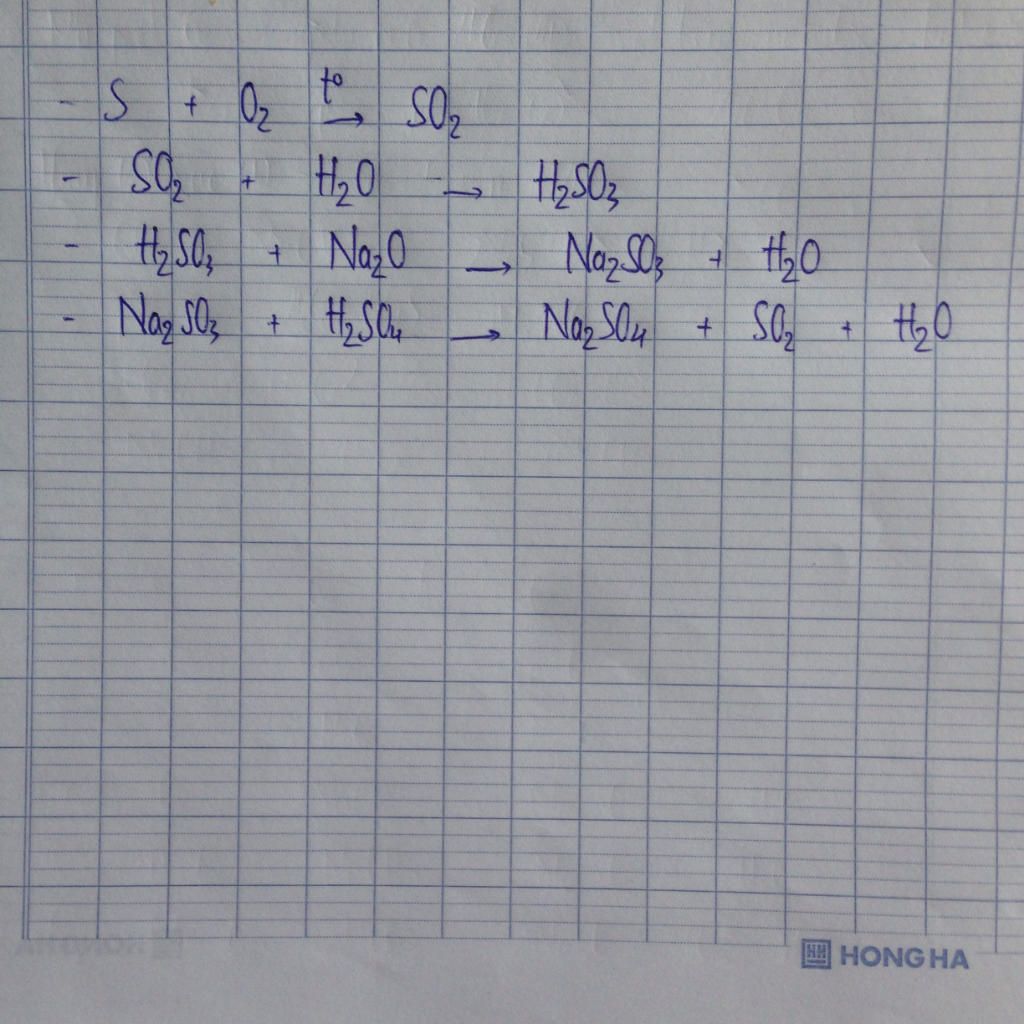 - S + O₂ t° → SO₂
- SO₂ + H₂O → H₂SO₃
- H₂SO₃ + Na₂O → Na₂SO₃ + H₂O
- Na₂SO₃ + H₂SO₄ → Na₂SO₄ + SO₂ + H₂O
HONG HA